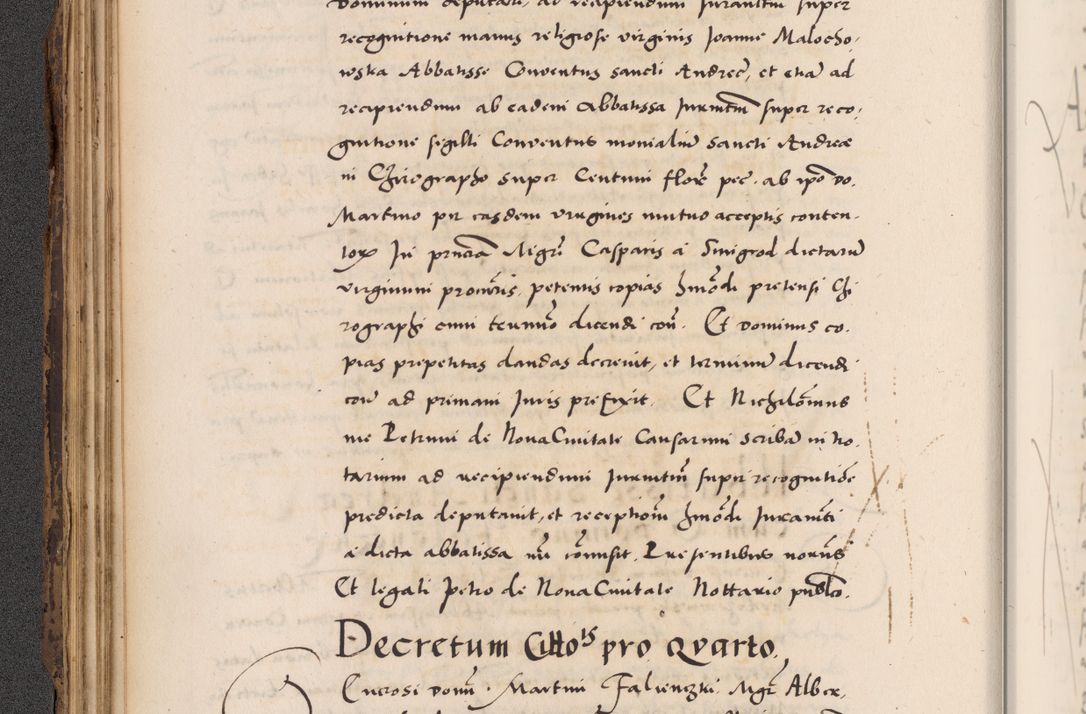 Dominum deputari, ad recipiendum Juramentum super
recognitione manus religiose virginis Joanne Malocho,
wska Abbatisse Conventus sancti Andree, et etiã ad
recipiendum ab eadem Abbatissa Juramtm super reco,
gnitione sigilli Conventus monialiũ sancti Andreæ
in Chirographo super Centum flor̃ pec. ab ipo do.
Martino per easdem virgines mutuo acceptis conten-
tor. In pñtia Mgri Casparis a Smigrod dictarũ
virginum procuris, petentis copias hmõdi pretensi Chi
rographi cum termino dicendi coñ. Et dominus co,
pias prepetitas dandas decrevit, et terminũ dicendi
con ad primam Juris prefixit. Et Nichilõminus
me Petrum de Nova Civitate Causarum scribã in no,
tarium ad recipiendum Juramtm super recognitiõe
predicta deputavit, et receptionẽ hmõdi Juramti
a dicta abbatissa mi cõmisit. Presentibus
Et legati Petro de Nova Civitate Nottario publco.
Decretum Citto¹ˢ pro Qvarto.
Generosi domi. Martini Falienczki. Mgr Alber,